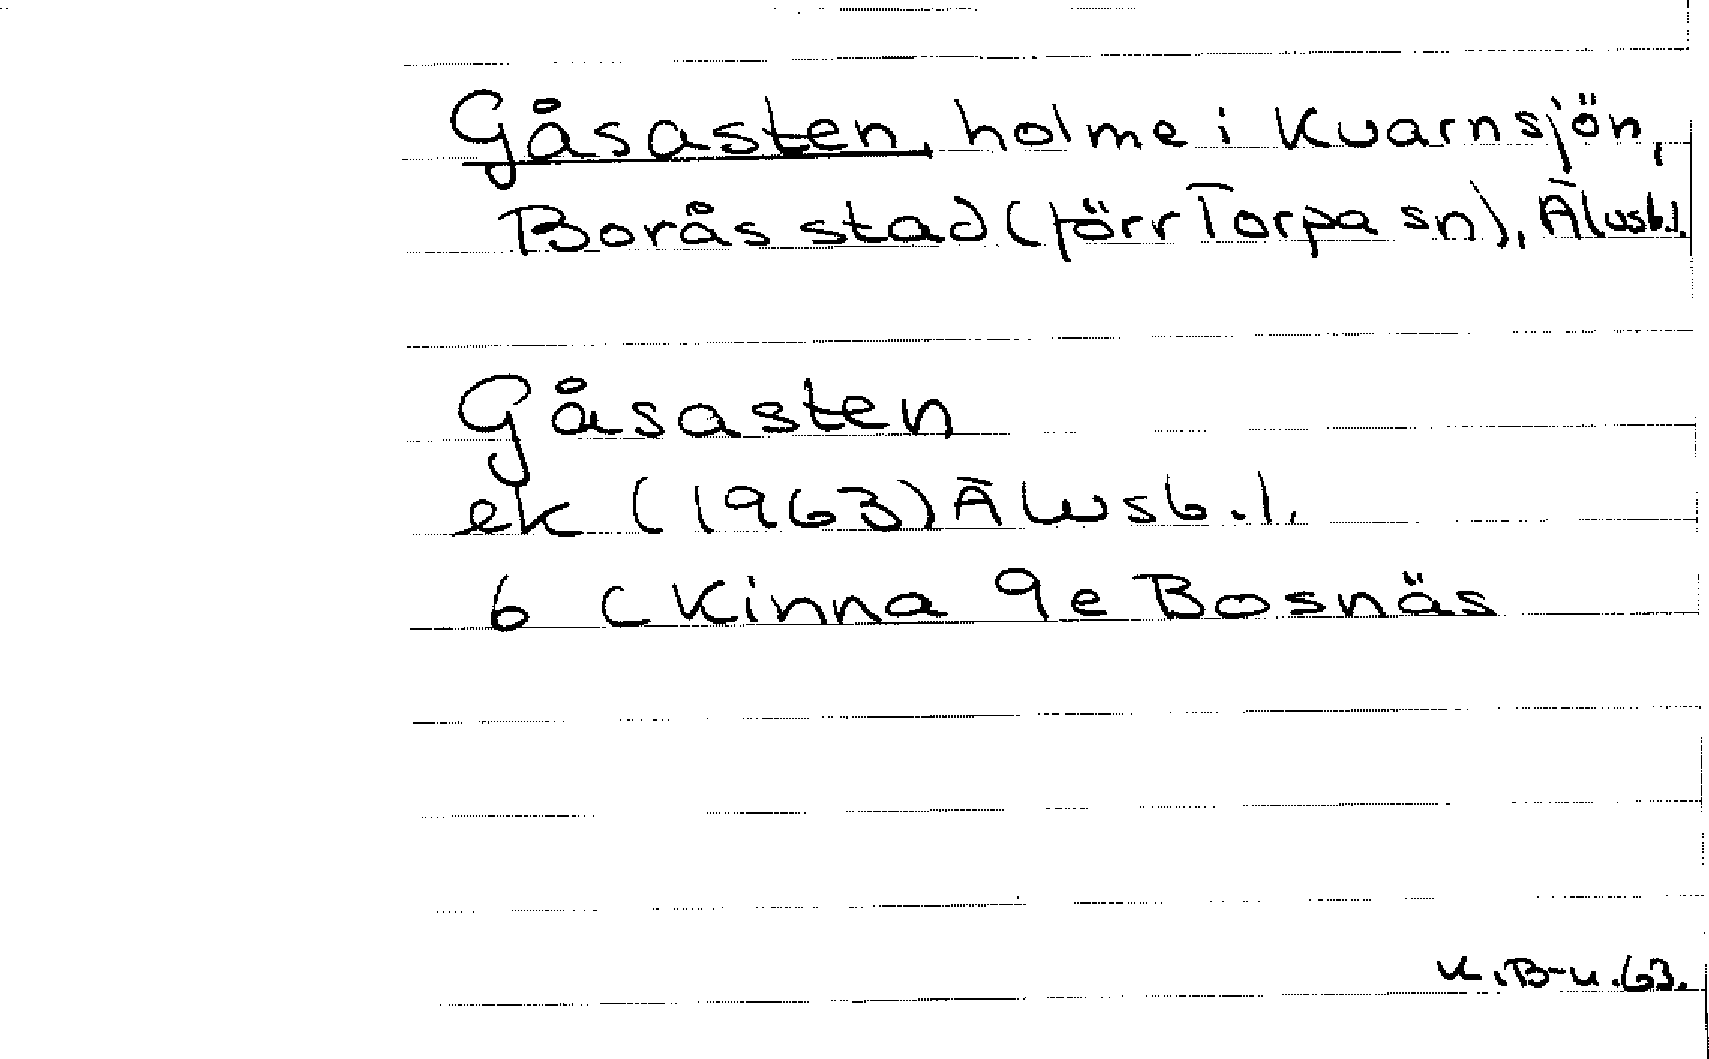 Gåsasten, holme i Kvarnsjön,
Borås stad (förr Torpa sn), Älvsb.l.
Gåsasten
ek (1963) Älvsb.l.
6 C Kinna 9e Bosnäs
K.B-n.63.